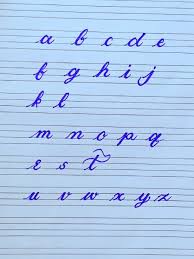 a b c d e
f g h i j
k l
m n o p q
r s t
u v w x y z